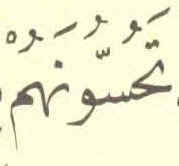 تَحُسُّونَهُمْ